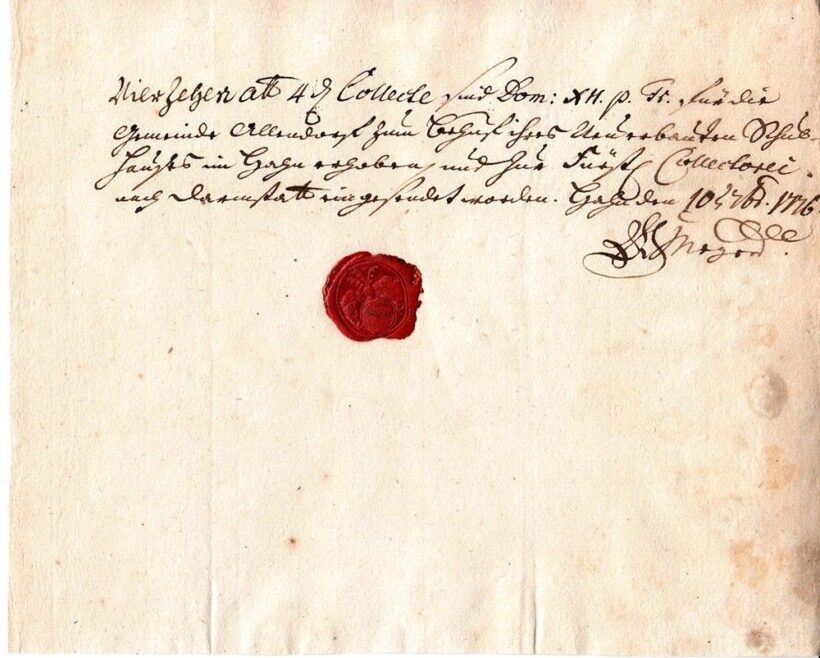 Vierzehen alb 4 ₰ Collecte sind Dom: XII. p. Tr. für die
Gemeinde Allendorf zum Behuf ihres Neuerbauten Schul-
hauses im Hahn erhoben, und zur Fürstl Collectorei
nach Darmstatt eingesendet worden. Hahn den 10 7br. 1776
Meyer